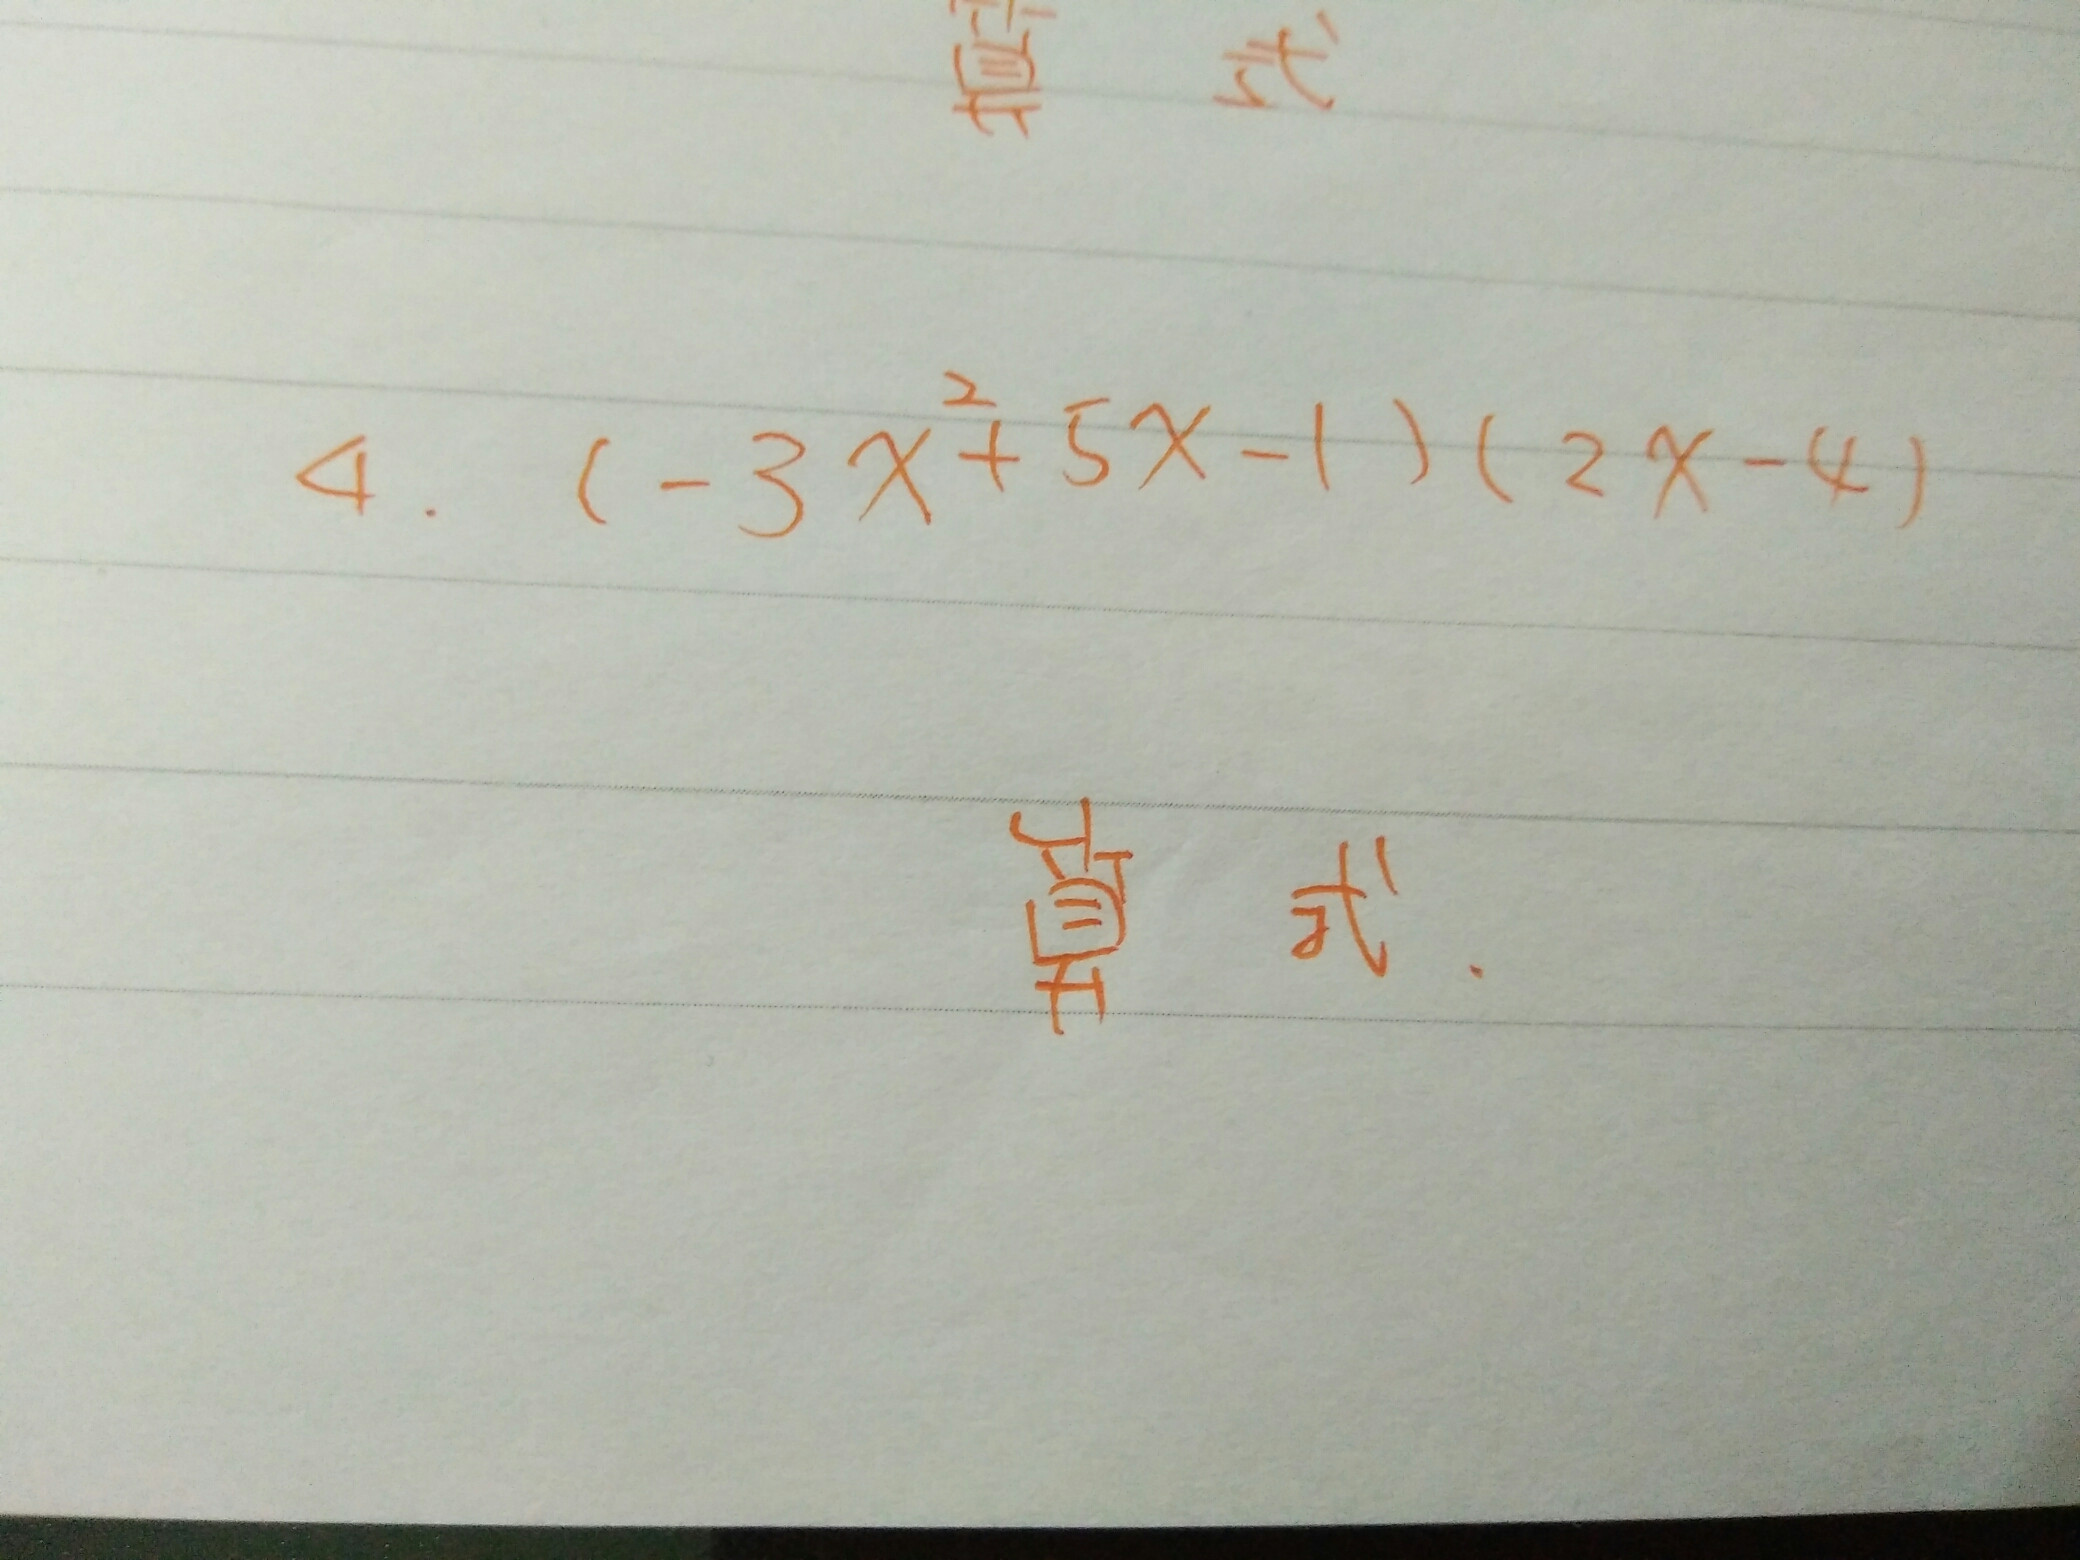 算 式
4. (-3x²+5x-1)(2x-4)
算 式.